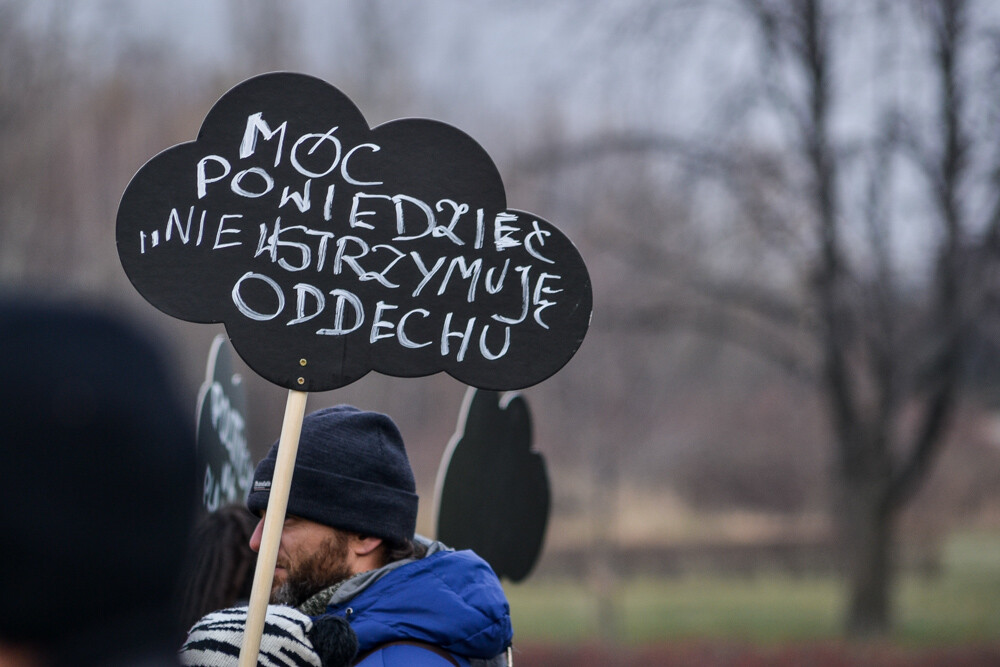 MÓC
POWIEDZIEĆ
„NIE WSTRZYMUJĘ
ODDECHU